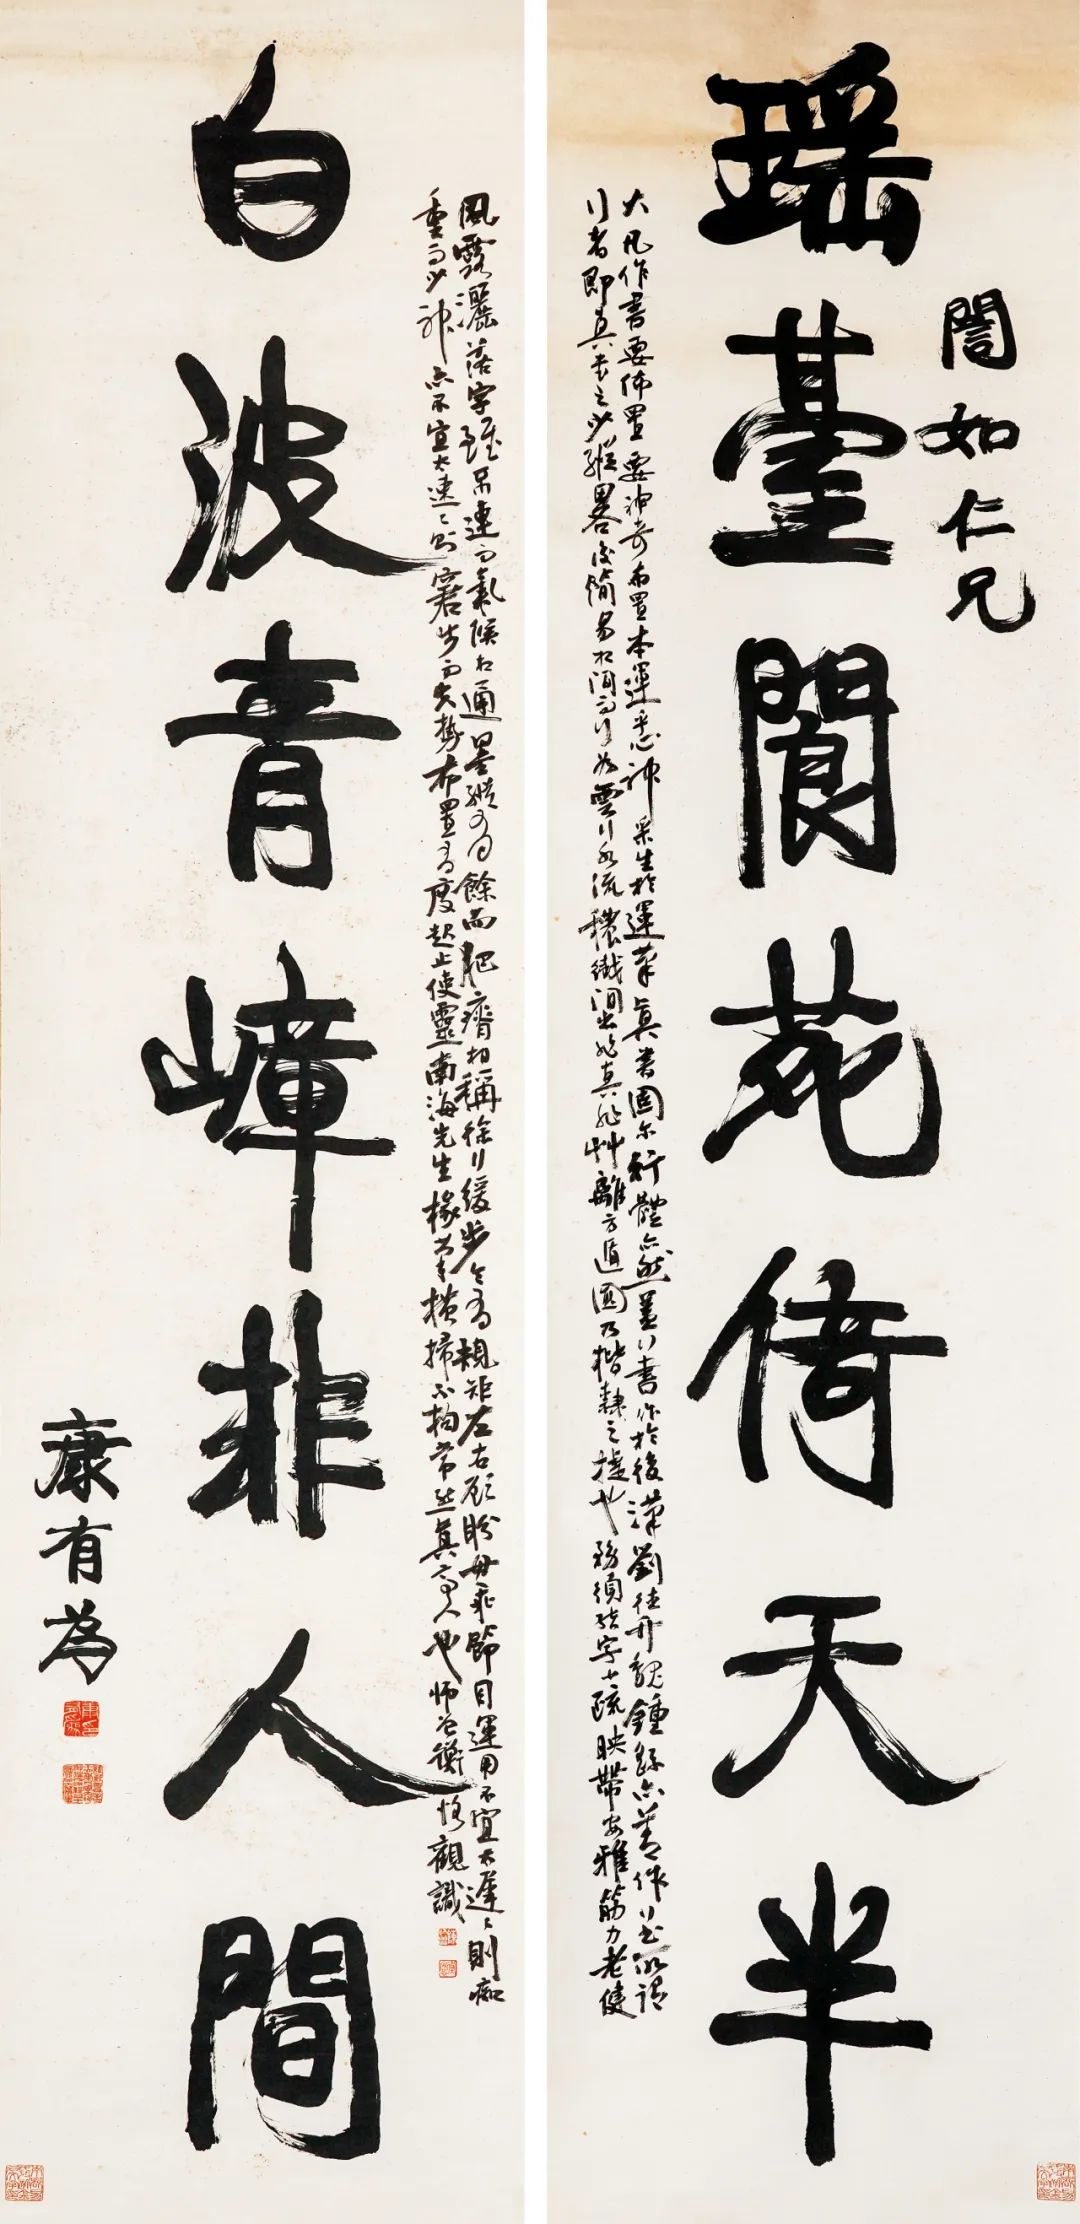 誾如仁兄
瑤臺閬苑倚天半
大凡作書要佈置要神奇布置本運乎心神采生於運筆真書固尔行體亦然蓋行書作於後漢劉德升魏鍾繇亦善作行書所謂
行者即真書之少縱畧後簡易相間而行如雲行水流穠纖間出非真非艸離方遁圓乃楷隸之捷也務須結字小疏映帶安雅筋力老健
風露灑落字雖不連而氣候相通墨縱有餘而肥瘠相稱徐行緩步令有規矩左右顧盼毋乖節目運用不宜太遲〻則癡
重而少神亦不宜太速〻則窘步而失勢布置有度起止使靈南海先生椽筆橫掃不拘常然真高人也師曾衡恪觀識
白波青嶂非人間
康有為